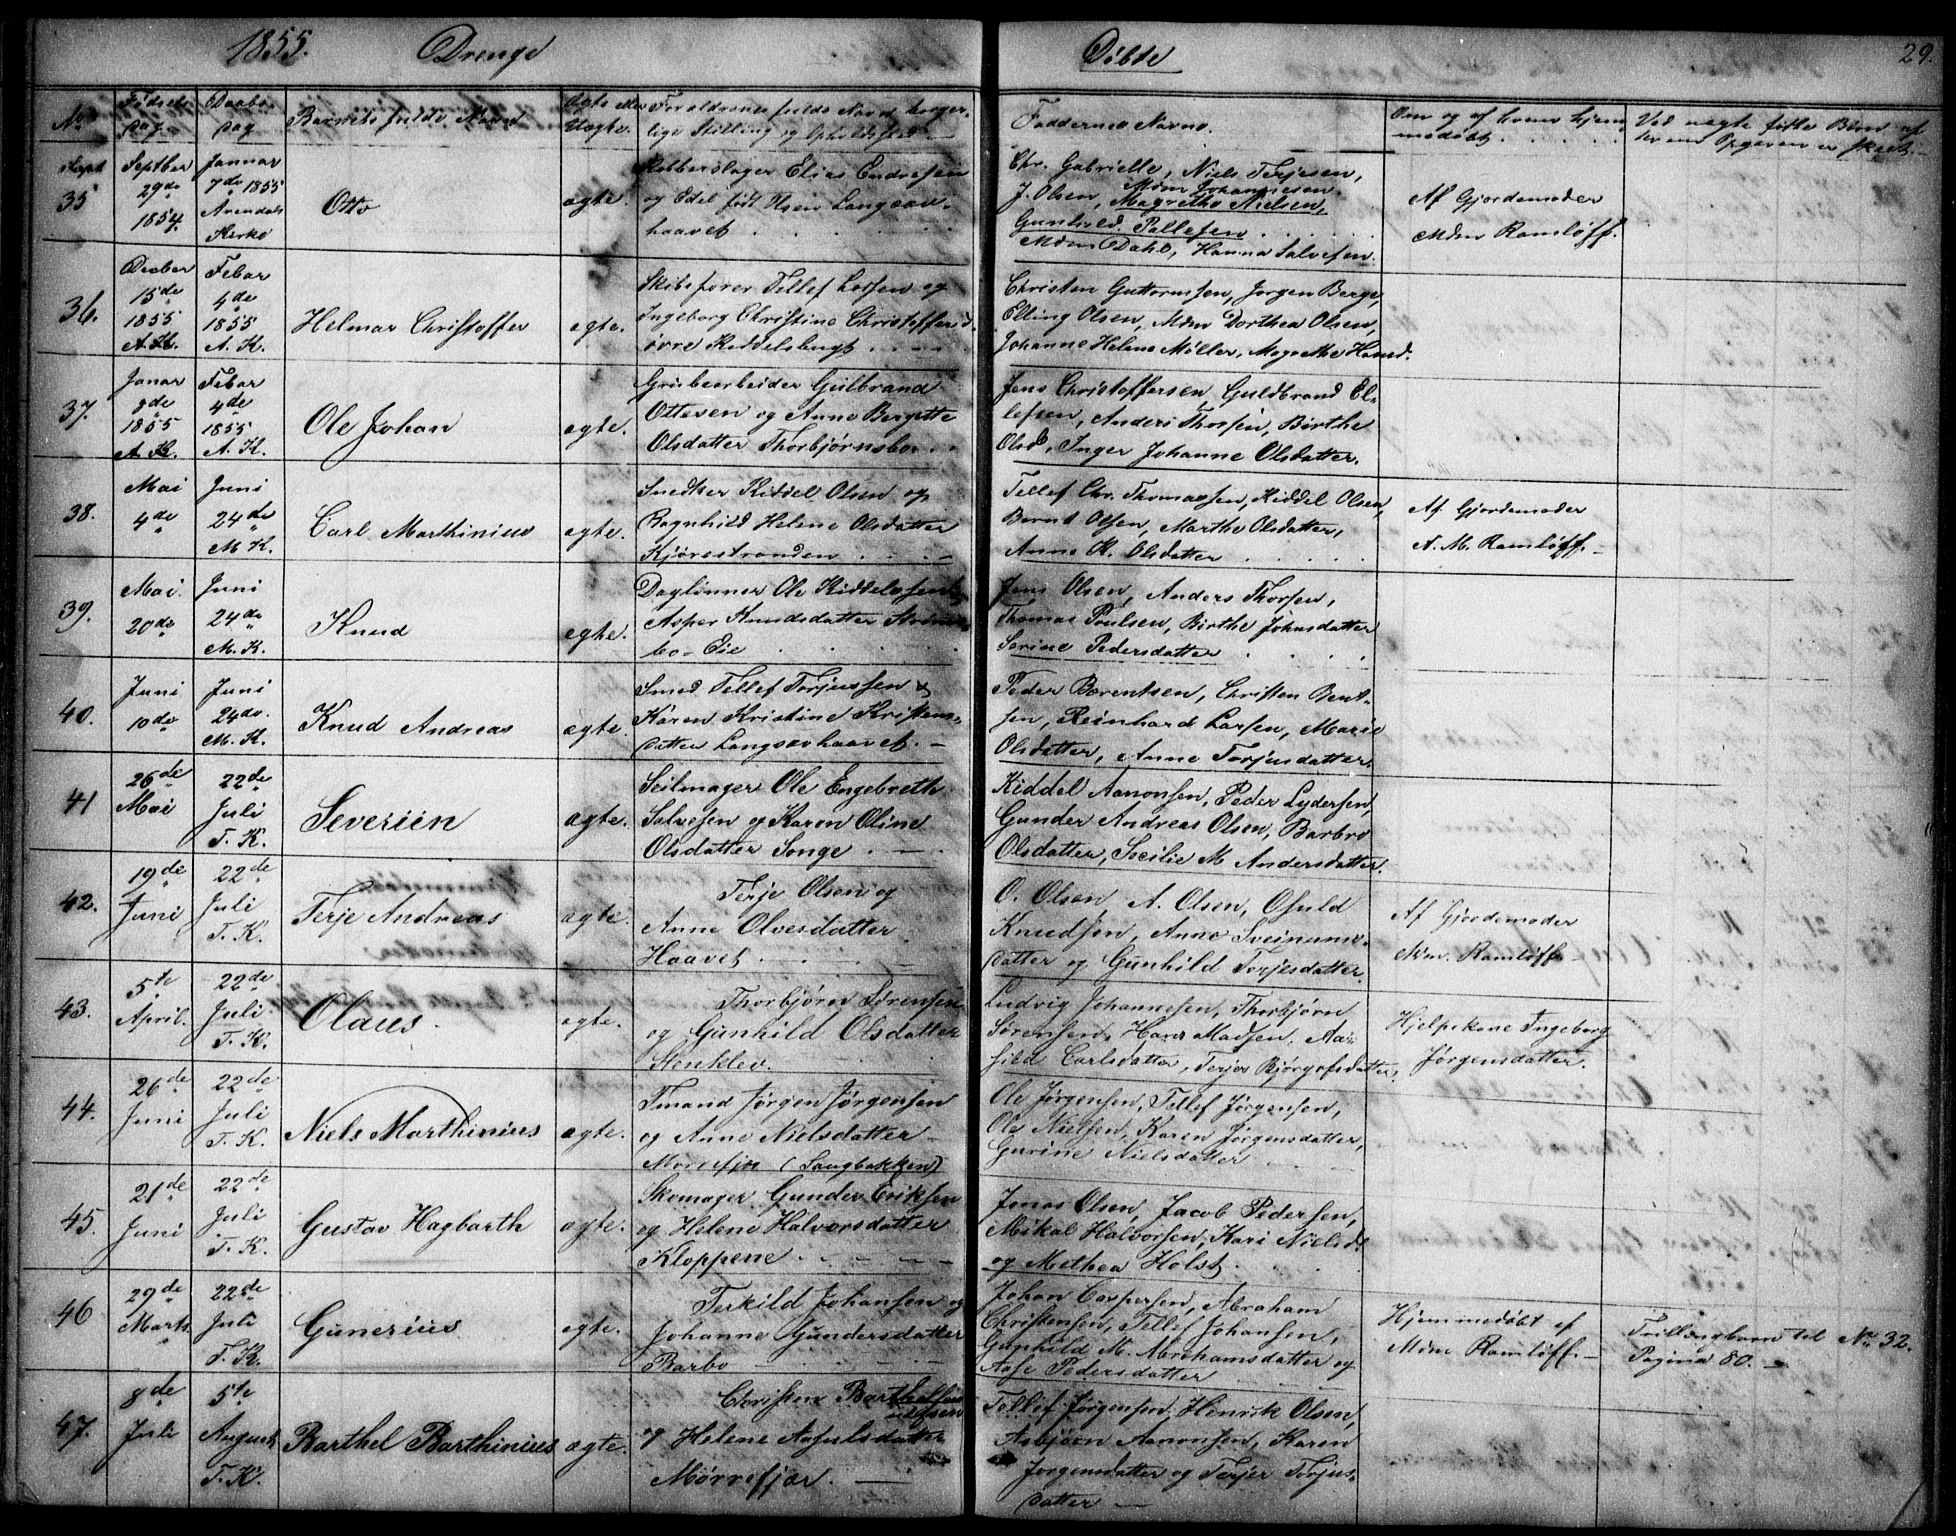 1855. Drenge
Døbte
29.
No
Fødsels
dag
Daabs
dag
Barnets fulde Navn
Ægte eller
Uægte.
Forældrenes fulde Navn borger-
lige Stilling og Opholdssted
Faddernes Navne.
Om og af hvem hjem-
medøbt.
Ved uægte fødte Børn af
35
Septber
29de
1854.
Januar
7de 1855
Arendals
Kirke
Otto
ægte.
Kobberslager Elias Endresen
og Edel født Olsen Langsæv-
haavet
Chr. Gabrielle, Niels Terjesen,
J. Olsen, Mdm Johannesen
Magrethe Nielsen,
Gunhild Pallesen
Mdm Dahl, Hanna Salvesen.
Af Gjordemoder
Mdm Ramløff.
36.
Decber
15de
1855
A. K.
Febar
4de
1855
A. K.
Helmar Christoffer
ægte.
Skibsfører Tellef Larsen og
Ingeborg Christine Christoffersd.
øvre Kiddelsbugt
Christen Guttormsen, Jørgen Berge,
Elling Olsen, Mdm Dorthea Olsen,
Johanne Helene Møller, Magrethe Hansd.
37.
Janar
8de
1855
A. K.
Febar
4de
1855
A. K.
Ole Johan
ægte.
Grubearbeider Gulbrand
Ottesen og Anne Bergitte
Olsdatter Thorbjørnsbo
Jens Christoffersen, Guldbrand El-
lefsen, Anders Thorsen, Birthe
Olsd., Inger Johanne Olsdatter.
38.
Mai
4de
Juni
24de
M. K.
Carl Marthinius
ægte.
Snedker Kiddel Olsen og
Ragnhild Helene Olsdatter
Kjørestranden
Tellef Chr. Thomassen, Kiddel Olsen,
Bernt Olsen, Marthe Olsdatter,
Anne K. Olsdatter
Af Gjordemoder
A. M. Ramløff.
39.
Mai.
20de
Juni
24de
M. K.
Knud
ægte.
Daglønner Ole Kiddelsen &
Asper Knudsdatter Strøms-
bo-Eie
Jens Olsen, Anders Thorsen,
Thomas Poulsen, Birthe Johnsdatter
Serine Pedersdatter
40.
Juni
10de
Juni
24de.
M. K.
Knud Andreas
ægte.
Smed Tellef Torjussen &
Karen Kristine Kristens-
datter Langsævhaavet.
Peder Berentsen, Christen Bent-
sen, Reinhard Larsen, Marie
Olsdatter, Anne Torjusdatter.
41
26de
Mai
22de
Juli
T. K.
Severiin
ægte.
Seilmager Ole Engebreth
Salvesen og Karen Oline
Olsdatter Songe
Kiddel Aanonsen, Peder Lydersen,
Gunder Andreas Olsen, Barbro
Olsdatter, Secilie M. Andersdatter.
42.
19de
Juni
22de
Juli
T. K.
Terje Andreas
ægte.
Terje Olsen og
Anne Olvesdatter
Haavet
O. Olsen A. Olsen, Osuld
Knudsøn, Anne Sveinums-
datter og Gunhild Torjesdatter.
Af Gjordemoder
Mdm. Ramløff
43.
5te
April.
22de
Juli
T. K.
Olaus.
ægte.
Thorbjørn Sørensen
og Gunhild Olsdatter
Stenklev.
Ludvig Johannesen, Thorbjørn
Sørensen, Hans Madsen, Aa-
sild Carlsdatter, Terjer Bjørgufsdatter.
Hjelpekone Ingeborg
Jørgensdatter.
44.
26de
Juni
22de
Juli
T. K.
Niels Marthinius
ægte.
Tmand Jørgen Jørgensen
og Anne Nielsdatter
Morrefjær (Saugbakken)
Ole Jørgensen, Tellef Jørgensen,
Ole Nielsen, Karen Jørgensdatter,
Gurine Nielsdatter
45.
21de
Juni
22de
Juli
T. K.
Gustav Hagbarth
ægte.
Skomager Gunder Eriksen
og Helene Halvorsdatter
Kloppene.
Jonas Olsen, Jacob Pedersen,
Mikal Halvorsen, Kari Nielsd.
og Methea Holst.
46
29de
Marts.
22de
Juli
T. K.
Gunerius
ægte.
Terkild Johansen og
Johanne Gundersdatter
Barbo
Johan Caspersen, Abraham
Christensen, Tellef Johansen,
Gunhild M. Abrahamsdatter og
Aase Pedersdatter
Hjemmedøbt af
Mdm Ramløff.
Trillingbarn til No 32.
Pagina 80.
47.
8de
Juli
5te
August
T. K.
Barthel Barthinius
ægte.
Christen Barthelsen
og Helene Aasulsdatter
Mørrefjær.
Tellef Jørgensen, Henrik Olsen,
Asbjørn Aanonsen, Karen
Jørgensdatter og Terjer Torjus-
datter